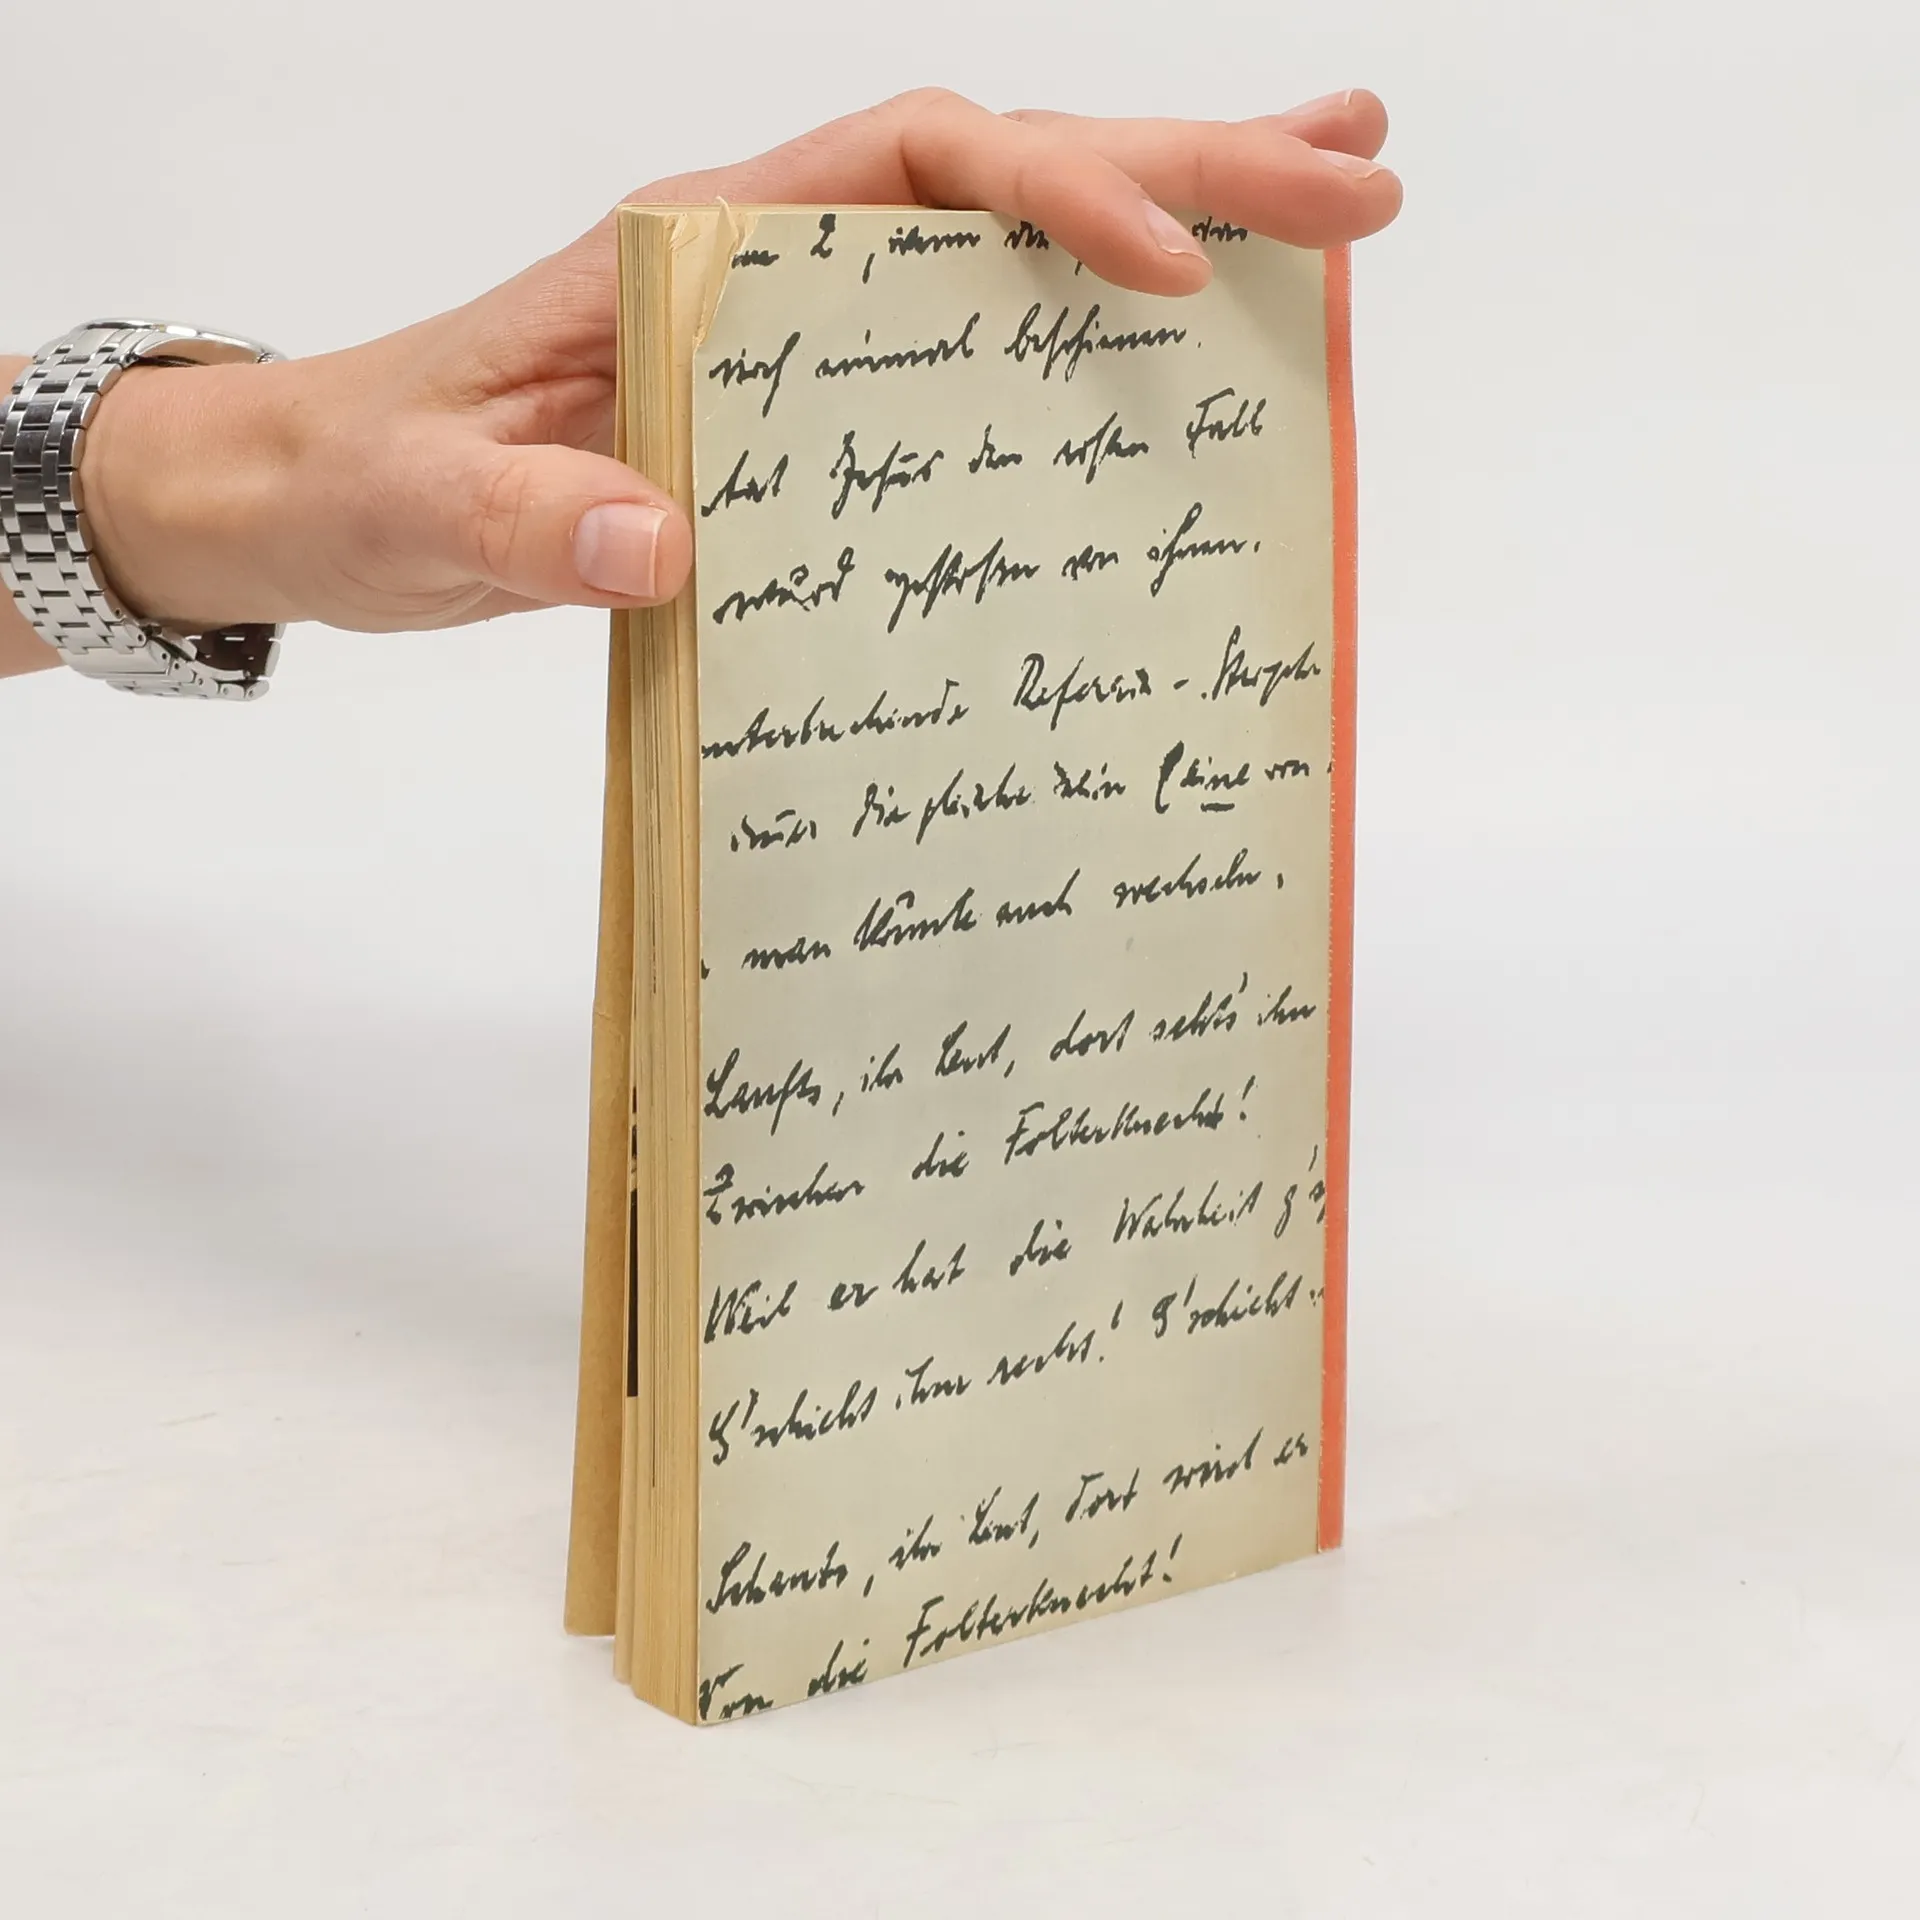 noch einmal beschienen.
tat Jesus den ersten Fall
wurd gestosen von ihnen.
unterbrechende Referain -
die gleiche sein Eine von
man könnte auch wechseln,
Laufts, ihr Leut, dort sehts ihn
Zwischen die Folterknecht!
Weil er hat die Wahrheit g's
G'schieht ihm recht! G'schieht
Schauts, ihr Leut, dort wird er
Von die Folterknecht!